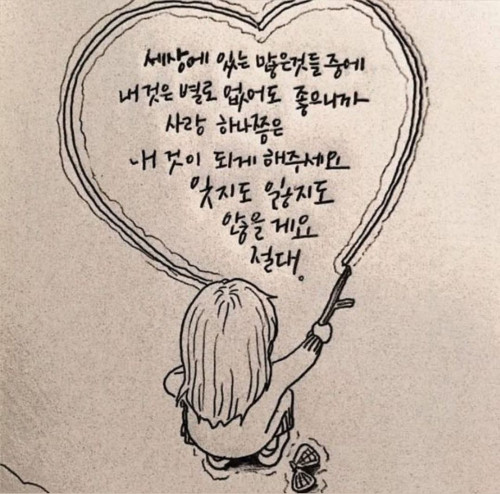 세상에 있는 많은것들 중에
내 것은 별로 없어도 좋으니까
사랑 하나쯤은
내 것이 되게 해주세요
잊지도 잃지도
않을 게요
절대.